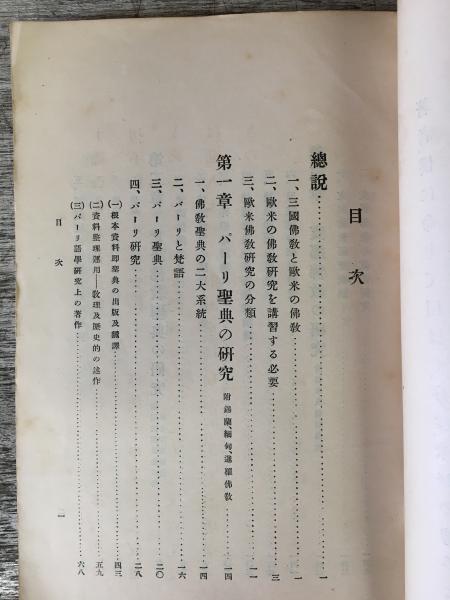 目次
總說……………一
一、三國佛敎と歐米の佛敎……………一
二、歐米の佛敎研究を講習する必要……………三
三、歐米佛敎研究の分類……………一一
第一章 パーリ聖典の研究 附錫蘭、緬甸、暹羅佛敎……………一四
一、佛敎聖典の二大系統……………一四
二、パーリと梵語……………一六
三、パーリ聖典……………二〇
四、パーリ研究……………二八
(一)根本資料卽聖典の出版及飜譯……………四三
(二)資料整理運用——敎理及歷史的の述作……………五九
(三)パーリ語學硏究上の著作……………六八
目次 一